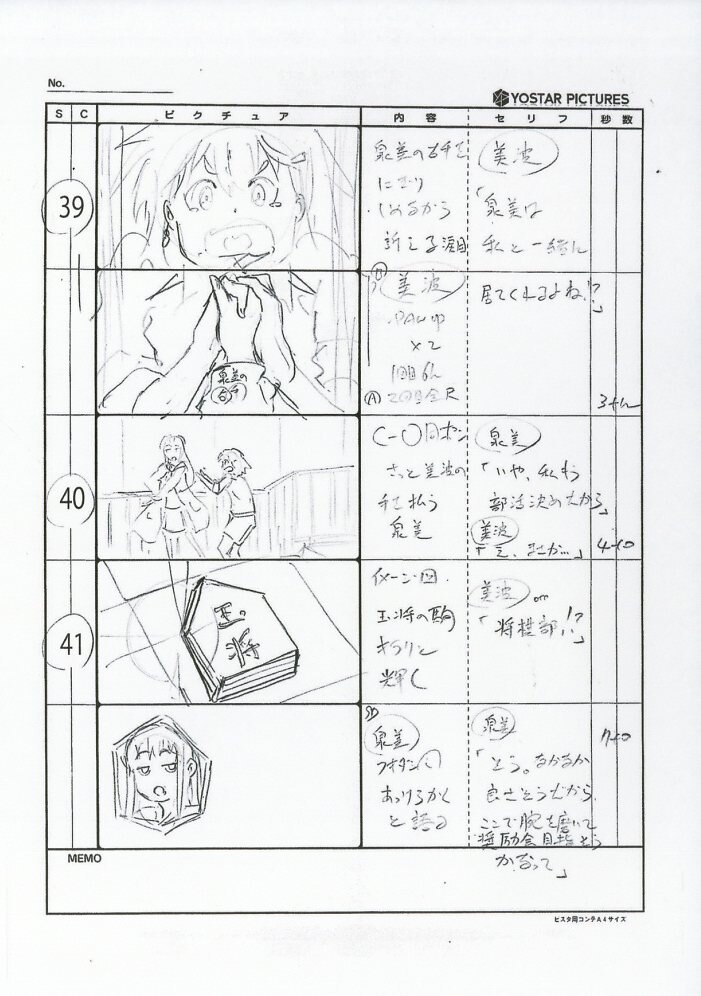 No.
YOSTAR PICTURES
S C ピクチュア 内容 セリフ 秒数
39
泉美の右手を
にぎり
訴える涙目
美波
「泉美は
私と一緒に
美波
PAN UP
×2
Ⓐ 2回目全尺
居てくれるよね!?」
泉美の
右手
3+
40
さっと美波の
手を払う
泉美
泉美
「いや、私もう
部活決めたから」
美波
「え、まさか…」
4+0
41
イメージ図.
玉将の駒
キラリと
輝く
玉将
美波 off
「将棋部!?」
SD
泉美
あっけらかんと
と語る
泉美
「そう。なかなか
良さそうだから.
ここで腕を磨いて
奨励会目指そう
かなって」
7+0
MEMO
ヒスタ用コンテA4サイズ